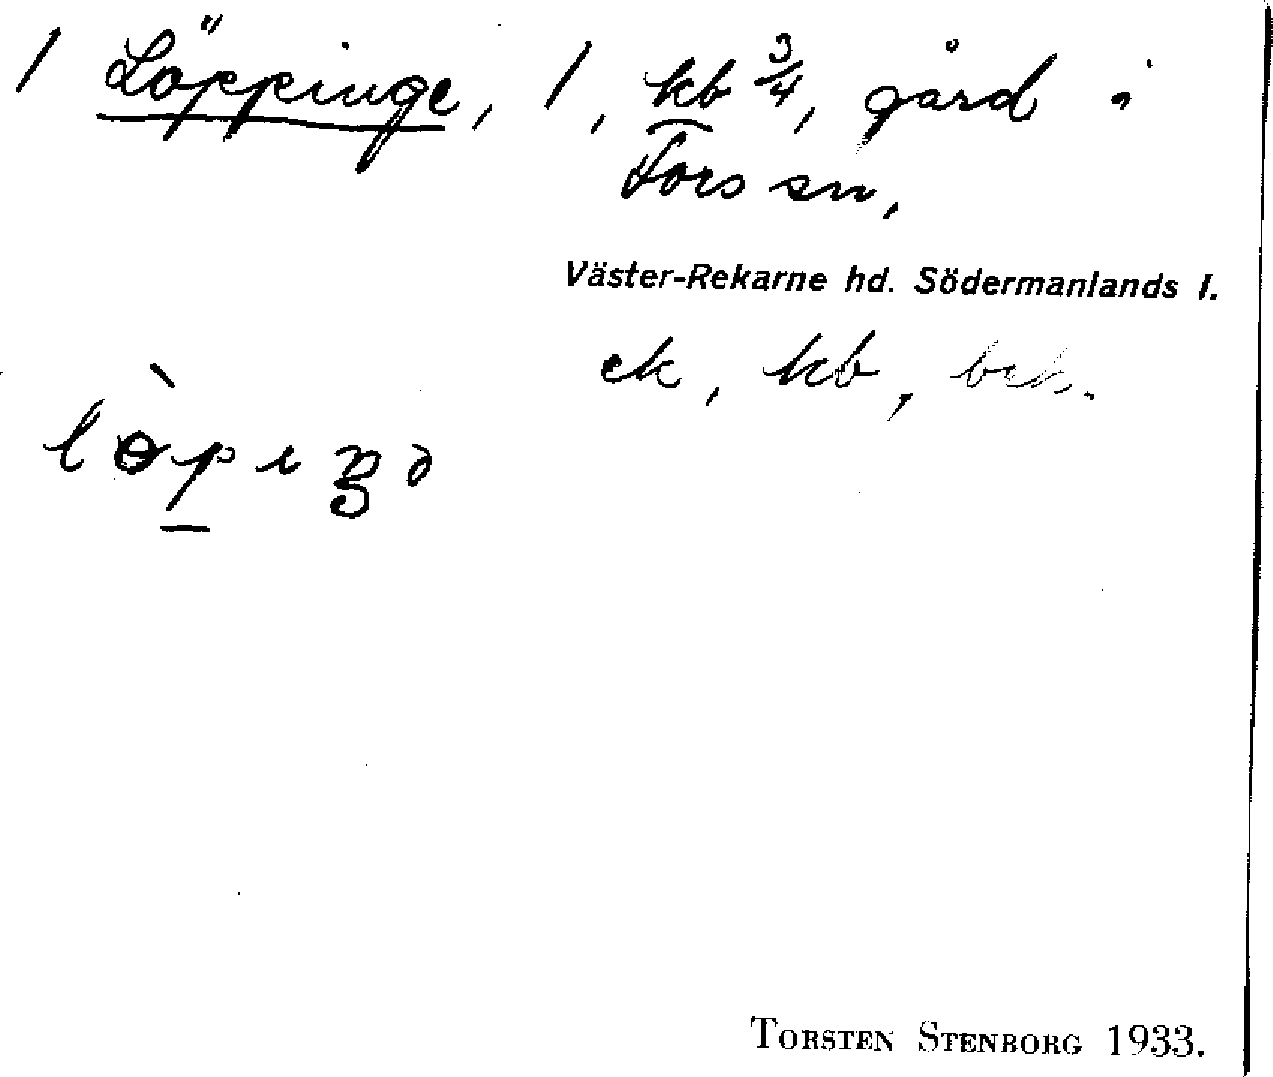 1 Löppinge, 1, kb 3/4, gård i
Fors sn,
Väster-Rekarne hd. Södermanlands l.
ek, kb, bek.
TORSTEN STENBORG 1933.